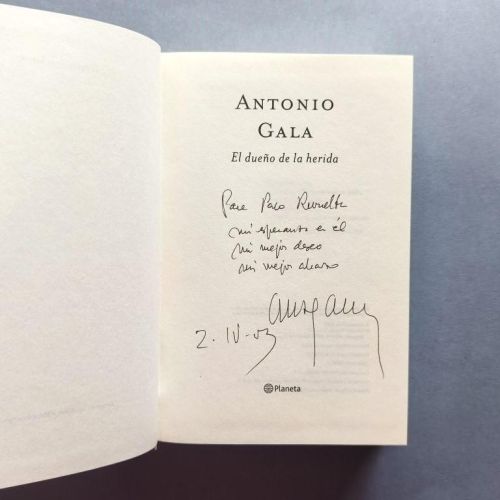 ANTONIO
GALA
El dueño de la herida
Para Paco Revuelta
mi esperanza en él
mi mejor deseo
mi mejor abrazo
2.IV.03
Planeta